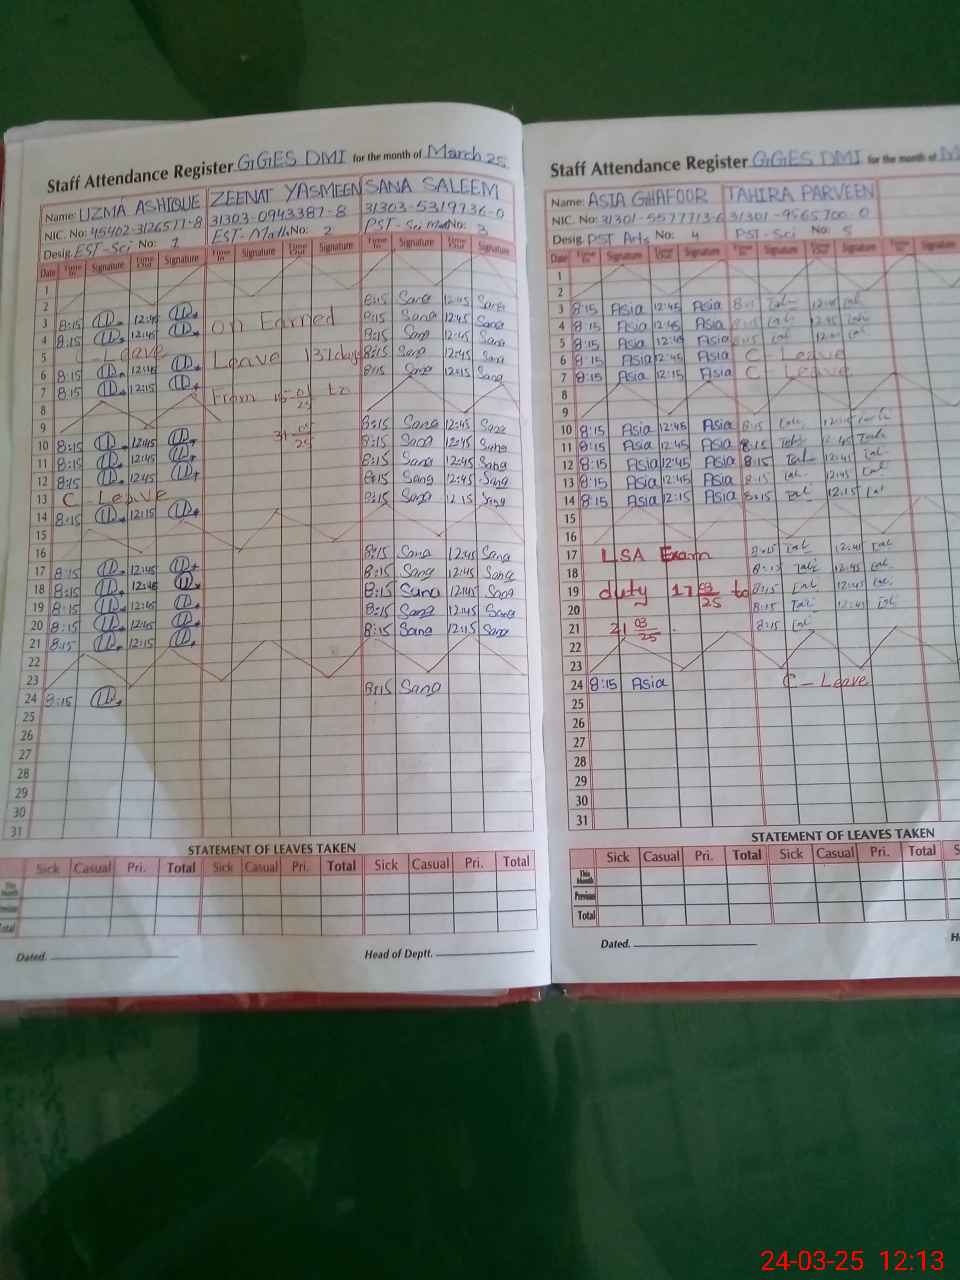 Staff Attendance Register GGES DMI for the month of March 25
Name: UZMA ASHIQUE ZEENAT YASMEEN SANA SALEEM
NIC. No: 45402-3126577-8 31303-0943387-8 31303-5319736-0
Desig. EST-Sci No: 1 EST-Math No: 2 PST-Sci Math No: 3
Date Time In Signature Time Out Signature Time In Signature Time Out Signature Time In Signature Time Out Signature
1
2
3 8:15 12:45 8:15 Sana 12:45 Sana
4 8:15 12:45 on Earned 8:15 Sana 12:45 Sana
5 C-Leave 8:15 Sana 12:45 Sana
6 8:15 12:45 Leave 137 days 8:15 Sana 12:45 Sana
7 8:15 12:15 From to 8:15 Sana 12:15 Sana
8
9
10 8:15 12:45 31 25 8:15 Sana 12:45 Sana
11 8:15 12:45 8:15 Sana 12:45 Sana
12 8:15 12:45 8:15 Sana 12:45 Sana
13 C-Leave 8:15 Sana 12:45 Sana
14 8:15 12:15 8:15 Sana 12:15 Sana
15
16
17 8:15 12:45 8:15 Sana 12:45 Sana
18 8:15 12:45 8:15 Sana 12:45 Sana
19 8:15 12:45 8:15 Sana 12:45 Sana
20 8:15 12:45 8:15 Sana 12:45 Sana
21 8:15 12:15 8:15 Sana 12:15 Sana
22
23
24 8:15 8:15 Sana
25
26
27
28
29
30
31
STATEMENT OF LEAVES TAKEN
Sick Casual Pri. Total Sick Casual Pri. Total Sick Casual Pri. Total
This Month
Previous
Total
Dated. Head of Deptt.
Staff Attendance Register GGES DMI for the month of M
Name: ASIA GHAFOOR TAHIRA PARVEEN
NIC. No: 31301-5577713-6 31301-9565700-0
Desig. PST Arts No: 4 PST-Sci No: 5
Date Time In Signature Time Out Signature Time In Signature Time Out Signature Time In Signature
1
2
3 8:15 Asia 12:45 Asia 8:15 12:45
4 8:15 Asia 12:45 Asia 8:15 12:45
5 8:15 Asia 12:45 Asia 8:15 12:45
6 8:15 Asia 12:45 Asia C-Leave
7 8:15 Asia 12:15 Asia C-Leave
8
9
10 8:15 Asia 12:45 Asia 8:15 12:45
11 8:15 Asia 12:45 Asia 8:15 12:45
12 8:15 Asia 12:45 Asia 8:15 12:45
13 8:15 Asia 12:45 Asia 8:15 12:45
14 8:15 Asia 12:15 Asia 8:15 12:15
15
16
17 LSA Exam 8:15 12:45
18 8:15 12:45
19 duty 17 03/25 to 8:15 12:45
20 8:15 12:45
21 21 03/25 8:15
22
23
24 8:15 Asia C-Leave
25
26
27
28
29
30
31
STATEMENT OF LEAVES TAKEN
Sick Casual Pri. Total Sick Casual Pri. Total S
This Month
Previous
Total
Dated. H
24-03-25 12:13